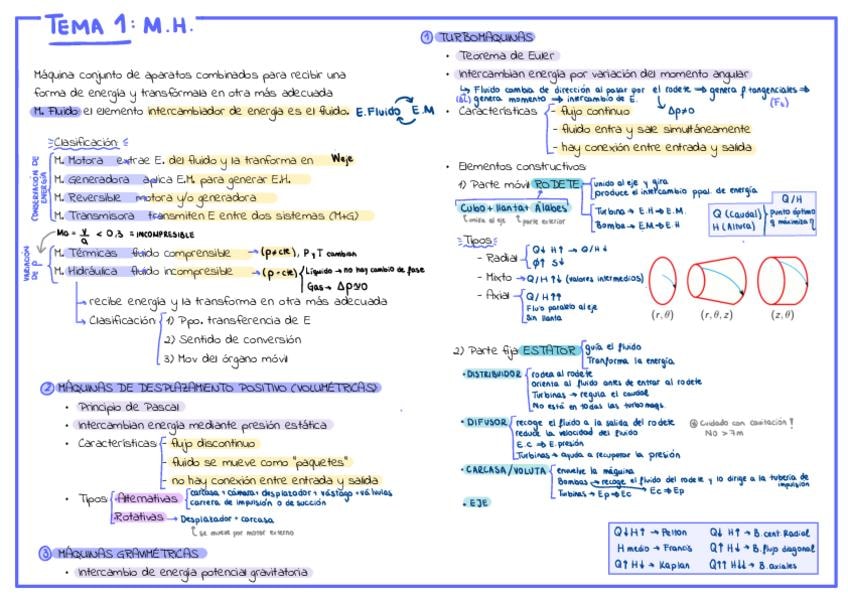 TEMA 1: M.H.
Máquina conjunto de aparatos combinados para recibir una
forma de energía y transformala en otra más adecuada
M. Fluido el elemento intercambiador de energía es el fluido. E.Fluido E.M
Clasificación:
CONSERVACIÓN DE ENERGÍA
M. Motora extrae E. del fluido y la tranforma en Weje
M. Generadora aplica E.M. para generar E.H.
M. Reversible motora y/o generadora
M. Transmisora transmiten E entre dos sistemas (M+G)
Ma = v/a < 0,3 = INCOMPRESIBLE
VARIACIÓN DE ρ
M. Térmicas fluido comprensible → (ρ≠cte), P y T cambian
M. Hidráulica fluido incompresible → (ρ=cte) Líquido → no hay cambio de fase
Gas → Δρ≈0
→ recibe energía y la transforma en otra más adecuada
→ Clasificación 1) Ppo. transferencia de E
2) Sentido de conversión
3) Mov del órgano móvil
② MÁQUINAS DE DESPLAZAMENTO POSITIVO (VOLUMÉTRICAS)
• Principio de Pascal
• Intercambian energía mediante presión estática
• Características - flujo discontinuo
- fluido se mueve como "paquetes"
- no hay conexión entre entrada y salida
• Tipos Alternativas carcasa + cámara + desplazador + vástago + válvulas
carrera de impulsión o de succión
Rotativas → Desplazador + carcasa
↳ se mueve por motor externo
③ MÁQUINAS GRAVIMÉTRICAS
• Intercambio de energía potencial gravitatoria
① TURBOMAQUINAS
• Teorema de Euler
• Intercambian energía por variación del momento angular
↳ Fluido cambia de dirección al pasar por el rodete → genera F tangenciales ⇒
genera momento → intercambio de E.
• Características - flujo continuo Δp≠0
- fluido entra y sale simultáneamente
- hay conexión entre entrada y salida
• Elementos constructivos:
1) Parte móvil RODETE unido al eje y gira
produce el intercambio ppal. de energía
Cubo + llanta + Álabes
unira al eje parte exterior
Turbina → E.H ⇒ E.M.
Bomba → E.M ⇒ E.H
Q/H
Q (Caudal)
H (Altura)
punto óptimo
η máxima η
Tipos
- Radial Q↓ H↑ → Q/H↓
Φ↑ S↓
- Mixto → Q/H ↑↓ (valores intermedios)
- Axial Q/H ↑↑
Flujo paralelo al eje
Sin llanta
(r, θ) (r, θ, z) (z, θ)
2) Parte fija ESTATOR guía el fluido
Tranforma la energía
• DISTRIBUIDOR rodea al rodete
orienta al fluido antes de entrar al rodete
Turbinas → regula el caudal
No está en todas las turbomaqs.
• DIFUSOR recoge el fluido a la salida del rodete
reduce la velocidad del fluido
E.C ⇒ E.presión
Turbinas → ayuda a recuperar la presión
Cuidado con cavitación!
NO > 7m
• CARCASA/VOLUTA envuelve la máquina
Bombas → recoge el fluido del rodete y lo dirige a la tubería de impulsión
Turbinas → Ep ⇒ Ec Ec ⇒ Ep
• EJE
Q↓ H↑ → Pelton Q↓ H↑ → B. cent. Radial
H medio → Francis Q↑ H↓ → B. flujo diagonal
Q↑ H↓ → Kaplan Q↑↑ H↓↓ → B. axiales